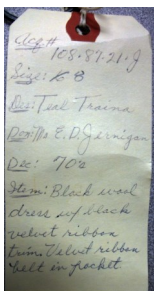 Acq#
108-87-21-J
Size: 8
Des: Teal Traina
Don: Mrs E. D. Jernigan
Dec: 70's
Item: Black wool
dress w/ black
velvet ribbon
trim. Velvet ribbon
belt in pocket.